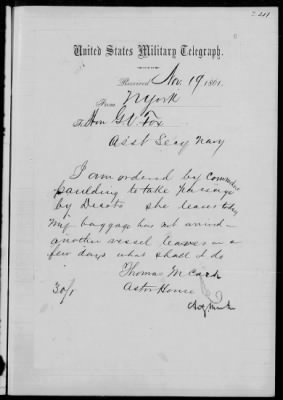 United States Military Telegraph.
Received Nov. 19 1861.
From N York
To Hon G V Fox
Asst Secy Navy
I am ordered by Commodre
paulding to take passage
by she leaves today
My baggage has not arrived -
another vessel leaves in a
few days what shall I do
Thomas M
Astor House
30/